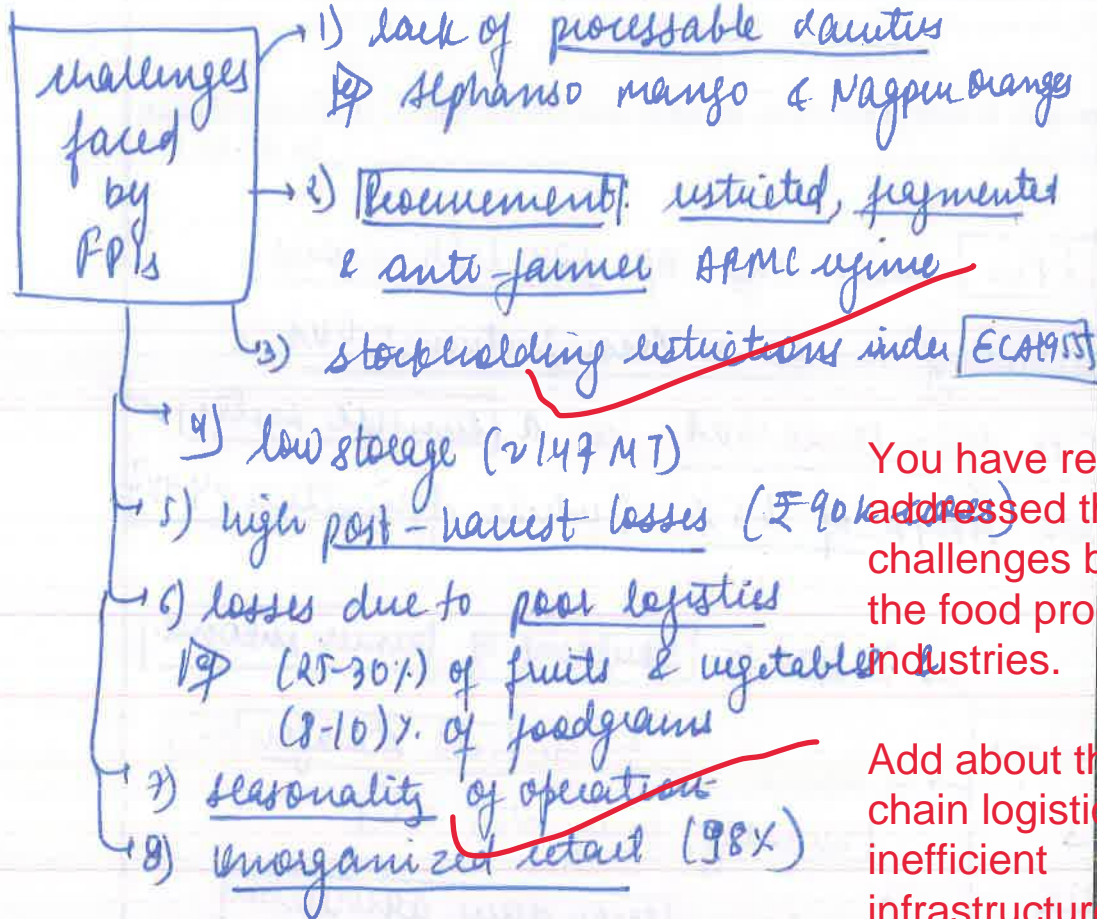 challenges
faced
by
FPIs
1) lack of processable varieties
eg Alphanso mango & Nagpur Oranges
2) Procurement: restricted, fragmented
& anti-farmer APMC regime
3) stockholding restrictions under ECA1955
4) low storage (~147 MT)
5) high post-harvest losses (₹90k crores)
6) losses due to poor logistics
eg (25-30%) of fruits & vegetables &
(8-10)% of foodgrams
7) seasonality of operation
8) unorganized retail (98%)
You have re
addressed th
challenges b
the food pro
industries.
Add about th
chain logistic
inefficient
infrastructur